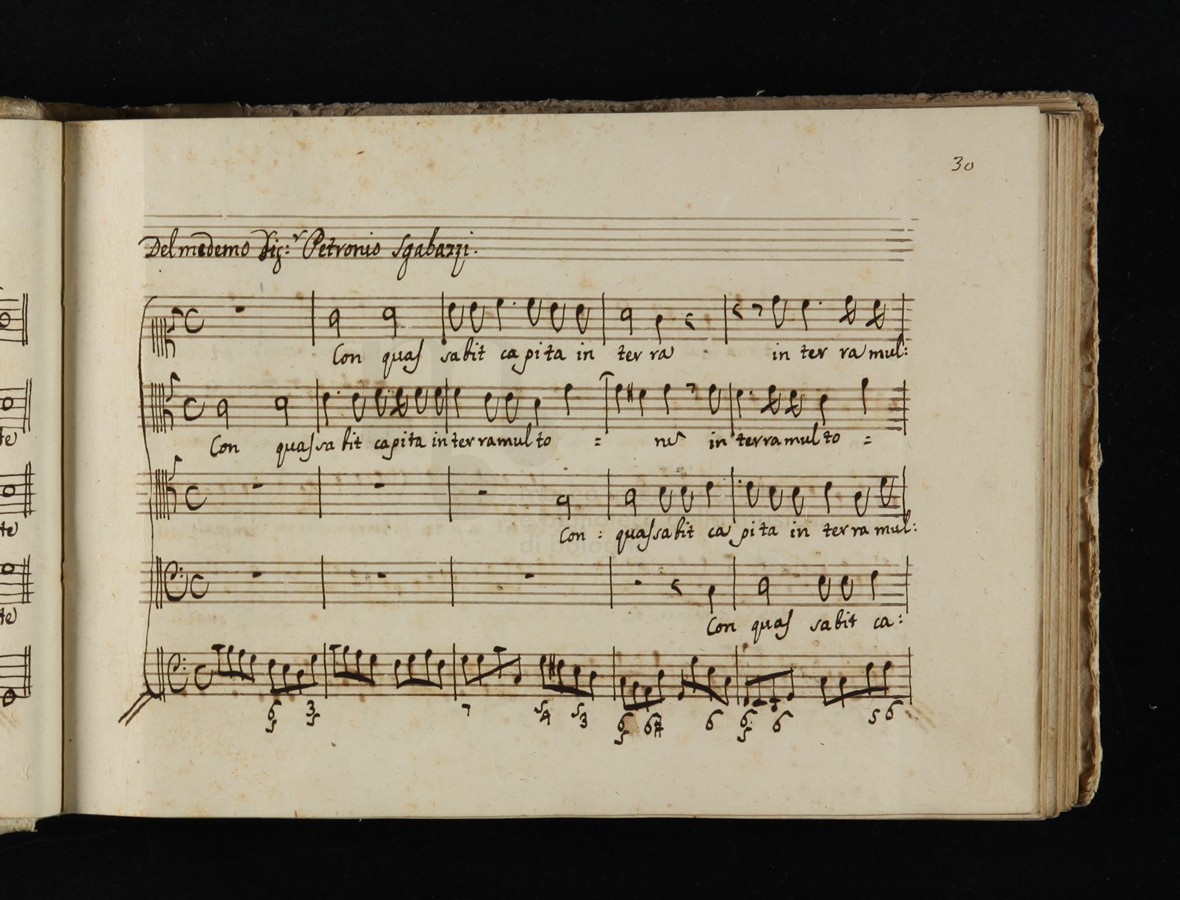 30
Del medemo Sig:r Petronio Sgabazzi.
Con quas sabit capita in ter ra in ter ra mul:
Con quassa bit capita in terra mul to = in terra mul to =
te
Con : quassabit ca pita in ter ra mul:
te
Con quas sabit ca:
te
6 5 3 5 7 5 4 5 3 6 5 6# 6 6 5 6 5 6